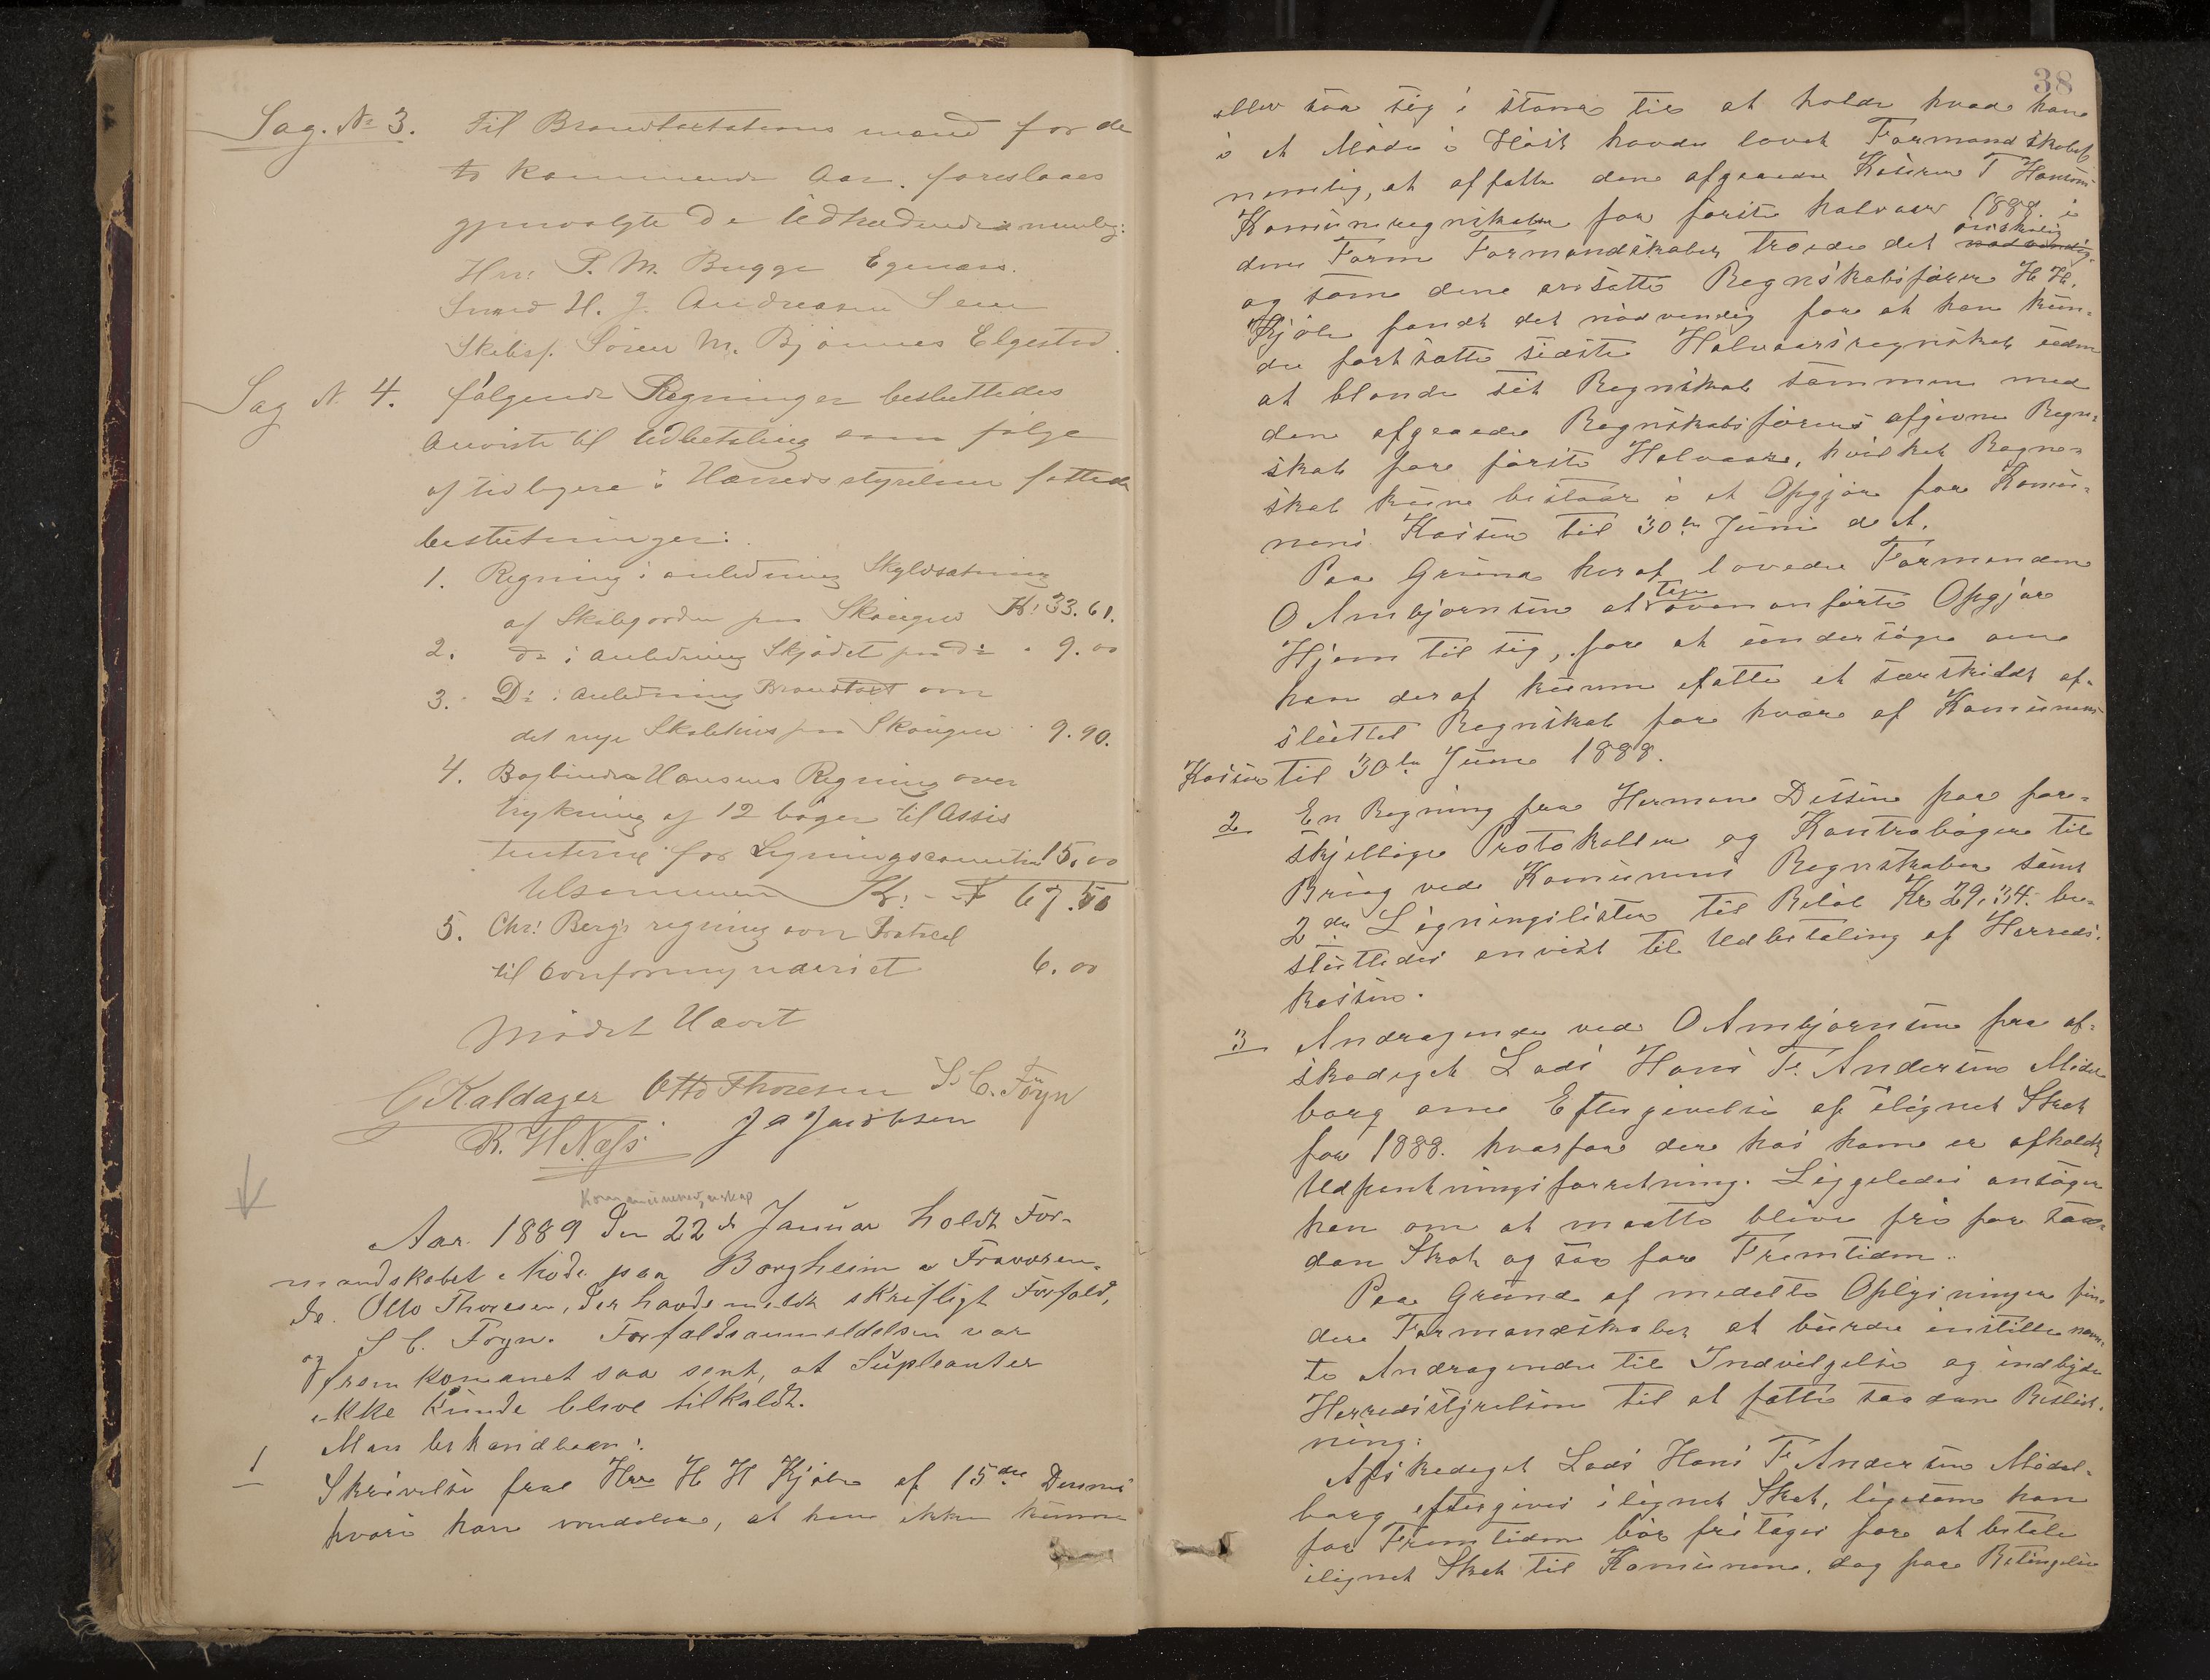 Sag. No 3. Til Brandtaxtations mænd for de
to kommende Aar. foreslaaes
gjenvalgte de Udtrædende nemlig:
Hrr. P. M. Bugge Egenæs.
Smed H. J. Andreasen Sem
Skibsf. Sören M. Bjönnes Elgested.
Sag N 4. fölgende Regninger besluttedes
anviste til Udbetaling som fölge
af tidligere i Herredsstyrelsen fattede
beslutninger:
1. Regning i anledning Skyldsætning
af Skolegorden paa Skaugen Kr: 33.61.
2. do i Anledning Skjödet paa do " 9.00
3. Do i Anledning Brandtaxt om
det nye Skolehus paa Skaugen " 9.90.
4. Bogbinder Hansens Regning over
trykning af 12 böger til Assis
tenterne for Ligningscomiteen 15.00
tilsammen Kr: 67.50
5. Chr: Bergs regning som Protocol
til Overformynderiet 6.00
Mödet Hævet
G Kaldager Otto Thoresen S. C. Föyn
R. H Næss J A Jacobsen
Kommuneregnskap
Aar 1889 den 22de Januar holdt For-
mandskabet Möde paa Borgheim. Fraværen-
de Otto Thoresen, der havde meldt skriftligt Forfald,
og S C. Foyn. Forfaldsanmeldelsen var
fremkommet saa sent, at Supleanter
ikke kunde blive tilkaldt.
Man behandlede:
1 Skrivelse fra Hrr H H Kjöle af 15de Dennes
hvori han meddeler, at han ikke kunne
38
eller saa sig i stand til at holde hvad han
i et Möde i Höst havde lovet Formandskabet
nemlig, at affatte den afgaaede Kasserer T Hansens
Komuneregnskaber for förste halvaar 1888. i
den Form Formandskabet troede det önskelig nödvendig.
og som den ansatte Regnskabsförer H. H.
Kjöle fandt det nödvendig for at han kun-
de fortsætte sidste Halvaarsregnskab uden
at blande sit Regnskab sammen med
den afgaaede Regnskabsförers afgivne Regn-
skab for förste Halvaar, hvilket Regne-
skab kun bestaar i et Opgjör for Komu-
nens Kasser til 30te Juni d. A.
Paa Grund heraf lovede Formanden
O Ambjørnsen at tage ovenanförte Opgjör
Hjem til sig, for at undersöge om
han deraf kunne efatte et særskildt af-
sluttet Regnskab for hver af Komunens
Kasser til 30te Juni 1888.
2 En Regning fra Herman Ditsen paa for-
skjellige Protokoller og Kontraböger til
Brug ved Komunens Regnskaber samt
2de Ligningslister til Belöb Kr 29,34. be-
sluttedes anvist til Udbetaling af Herreds-
kassen.
3 Andragende ved O Ambjørnsen fra af-
skediget Lods Hans F. Andersen Middel
borg om Eftergivelse af ilignet Skat
for 1888. hvorfor der hos ham er afholdt
Udpantningsforretning. Liggeledes ansöger
han om at maatte blive fri for saa-
dan Skat og saa for Fremtiden.
Paa Grund af meddelte Oplysninger fin-
der Formandskabet at burde instille nævn-
te Andragende til Indvilgelse og indbyde
Herredsstyrelsen til at fatte saadan Beslut-
ning:
Afskediget Lods Hans F Andersen Middel-
borg eftergives ilignet Skat, ligesom han
for Fremtiden bör fritages for at betale
ilignet Skat til Komunen, dog paa Betingelse